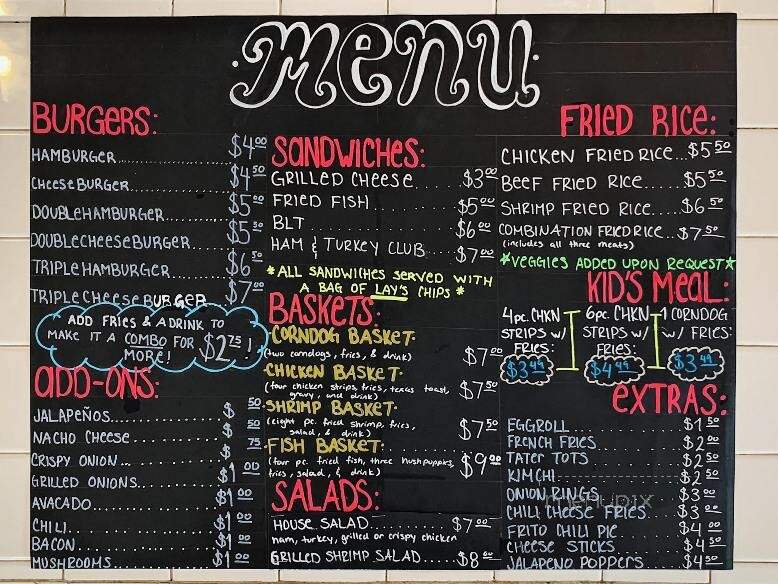 menu
BURGERS:
HAMBURGER $4.00
CHEESEBURGER $4.50
DOUBLEHAMBURGER $5.00
DOUBLECHEESEBURGER $5.50
TRIPLEHAMBURGER $6.50
TRIPLE CHEESE BURGER $7.00
ADD FRIES & A DRINK TO
MAKE IT A COMBO FOR $2.75
MORE!
ADD-ONS:
JALAPEÑOS $.50
NACHO CHEESE $.50
CRISPY ONION $.75
GRILLED ONIONS $1.00
AVACADO $1.00
CHILI $1.00
BACON $1.00
MUSHROOMS $1.00
SANDWICHES:
GRILLED CHEESE $3.00
FRIED FISH $5.00
BLT $6.00
HAM & TURKEY CLUB $7.00
*ALL SANDWICHES SERVED WITH
A BAG OF LAY'S CHIPS *
BASKETS:
CORNDOG BASKET
(two corndogs, fries, & drink) $7.00
CHICKEN BASKET
(four chicken strips, fries, texas toast,
gravy, and drink) $7.50
SHRIMP BASKET
(eight pc. fried shrimp, fries,
salad, & drink) $7.50
FISH BASKET
(four pc. fried fish, three hushpuppies,
fries, salad, & drink) $9.00
SALADS:
HOUSE SALAD $7.00
ham, turkey, grilled or crispy chicken
GRILLED SHRIMP SALAD $8.00
FRIED RICE:
CHICKEN FRIED RICE $5.50
BEEF FRIED RICE $5.50
SHRIMP FRIED RICE $6.50
COMBINATION FRIED RICE $7.50
(includes all three meats)
*VEGGIES ADDED UPON REQUEST*
KID'S MEAL:
4pc. CHKN
STRIPS W/
FRIES:
$3.49
6pc. CHKN
STRIPS W/
FRIES:
$4.49
1 CORNDOG
W/ FRIES:
$3.49
EXTRAS:
EGGROLL $1.50
FRENCH FRIES $2.00
TATER TOTS $2.50
KIMCHI $2.50
ONION RINGS $3.00
CHILI CHEESE FRIES $3.00
FRITO CHILI PIE $4.00
CHEESE STICKS $4.50
JALAPENO POPPERS $4.50
menupix